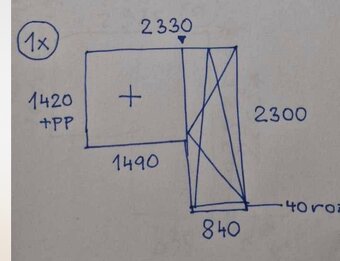 1x
2330
1420
+PP
2300
1490
40roz
840